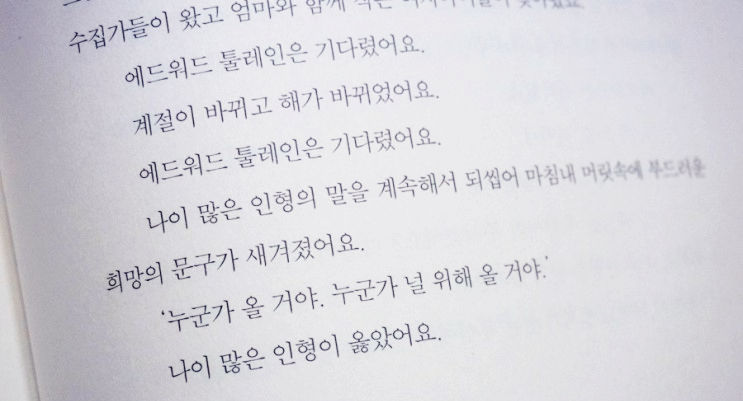 수집가들이 왔고 엄마와 함께
에드워드 툴레인은 기다렸어요.
계절이 바뀌고 해가 바뀌었어요.
에드워드 툴레인은 기다렸어요.
나이 많은 인형의 말을 계속해서 되씹어 마침내 머릿속에 부드러운
희망의 문구가 새겨졌어요.
‘누군가 올 거야. 누군가 널 위해 올 거야.’
나이 많은 인형이 옳았어요.